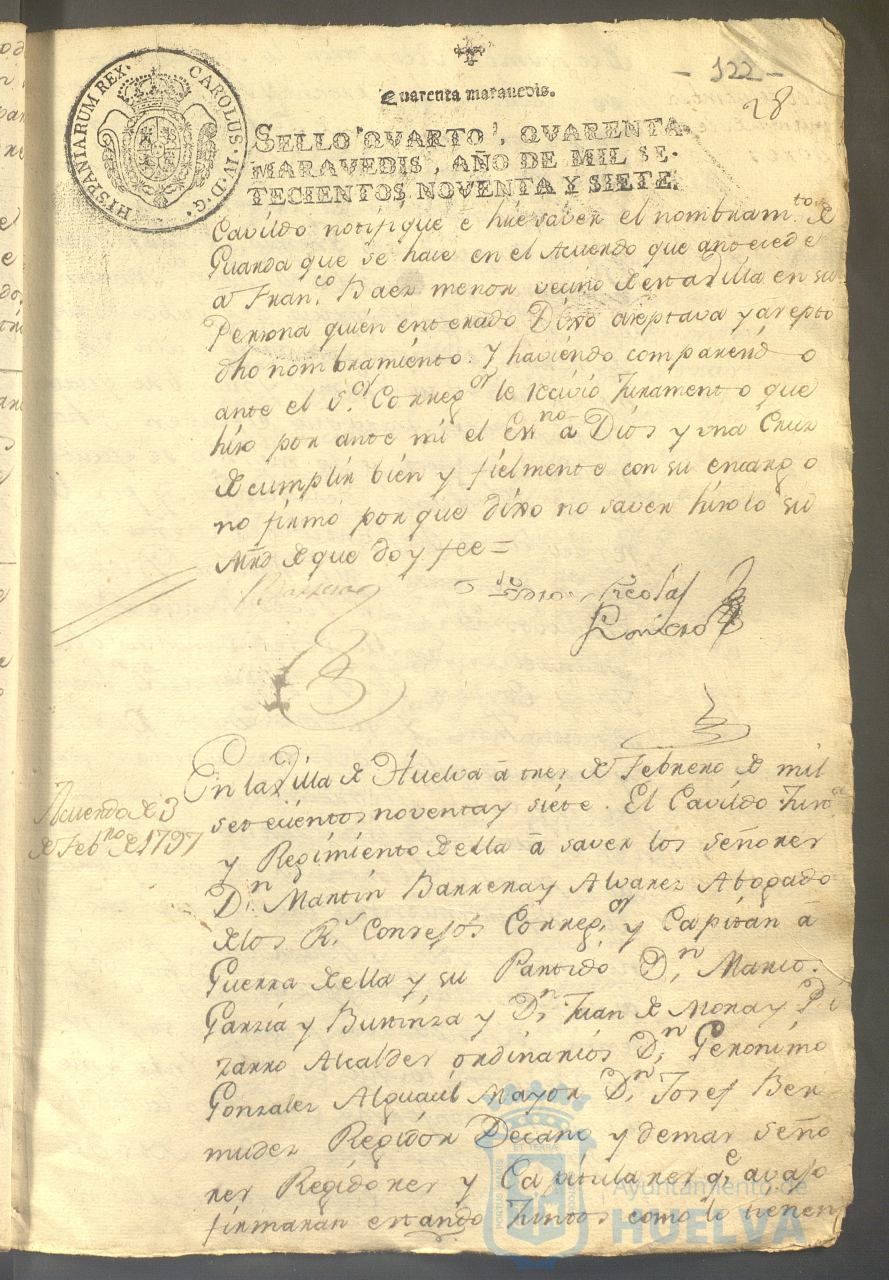 - 122 -
28
Quarenta marauedis.
HISPANIARUM REX. CAROLUS. IV. D. G.
SELLO QVARTO, QVARENTA
MARAVEDIS, AÑO DE MIL SE-
TECIENTOS NOVENTA Y SIETE.
Cavildo notifique e hize saver el nombram.to de
Guarda que se hace en el Acuerdo que antecede
a Fran.co Baez menor vecino de esta Villa en su
Persona quien enterado Dixo aceptava y acepto
dho nombramiento. Y haviendo comparend o
ante el S.or Correg.or le recivió Juramento que
hizo por ante mi el Es.no a Dios y una Cruz
de cumplir bien y fielmente con su encargo
no firmó por que dixo no saver hizolo su
Mrd de que doy fee =
Barrera
Nicolas
Romero
Acuerdo de 3
de Feb.ro de 1797
En la Villa de Huelva â tres de Febrero de mil
setecientos noventa y siete. El Cavildo Just.a
y Regimiento de ella â saver los señores
D.n Martin Barrera y Alvarez Abogado
de los R.s Consejos Correg.or y Capitan â
Guerra de ella y su Partido D.n Marco.
Garzia y Bustinza y D.n Juan de Mora y Pi
zarro Alcaldes ordinarios D.n Geronimo
Gonzalez Alguacil Mayor D.n Josef Ber
mudez Regidor Decano y demas seño
res Regidores y Capitulares q.e avajo
firmaran estando Juntos como lo tienen
Ayuntamiento de
HUELVA